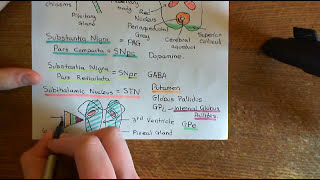 chiasma
Pituitary
Gland
body
Red
Nucleus
Periaqueductal
Gray
Cerebral
aqueduct
Superior
Colliculi
Substantia Nigra
Pars Compacta = SNpc
= PAG
Dopamine.
Substantia Nigra
Pars Reticulata = SNpr
GABA
Subthalamic Nucleus = STN
Putamen
Globus Pallidus
GPi - internal Globus
Pallidus
GPe
3rd Ventricle
Pineal Gland